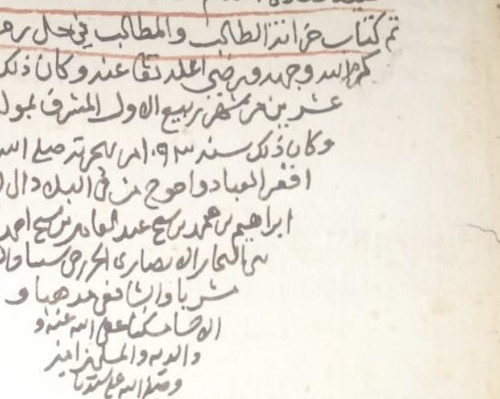 تم كتاب خزانة الطالب والمطالب في حل رمو
كرم الله وجهه ورضي الله تعا عنه وكان ذلك
عشرين من شهر ربيع الاول المشرف بمولد
وكان ذلك سنة ١٠٩٣ من الهجرة صلى الله
افقر العباد واحوج من في البلاد
ابراهيم بن محمد بن شيخ عبد القادر بن شيخ احمد
بن النجار الانصاري الخزرجي نسبا
مشربا والشافعي مذهبا و
عفى الله عنه و
والديه والمسلمين امين
وصلى الله على سيدنا